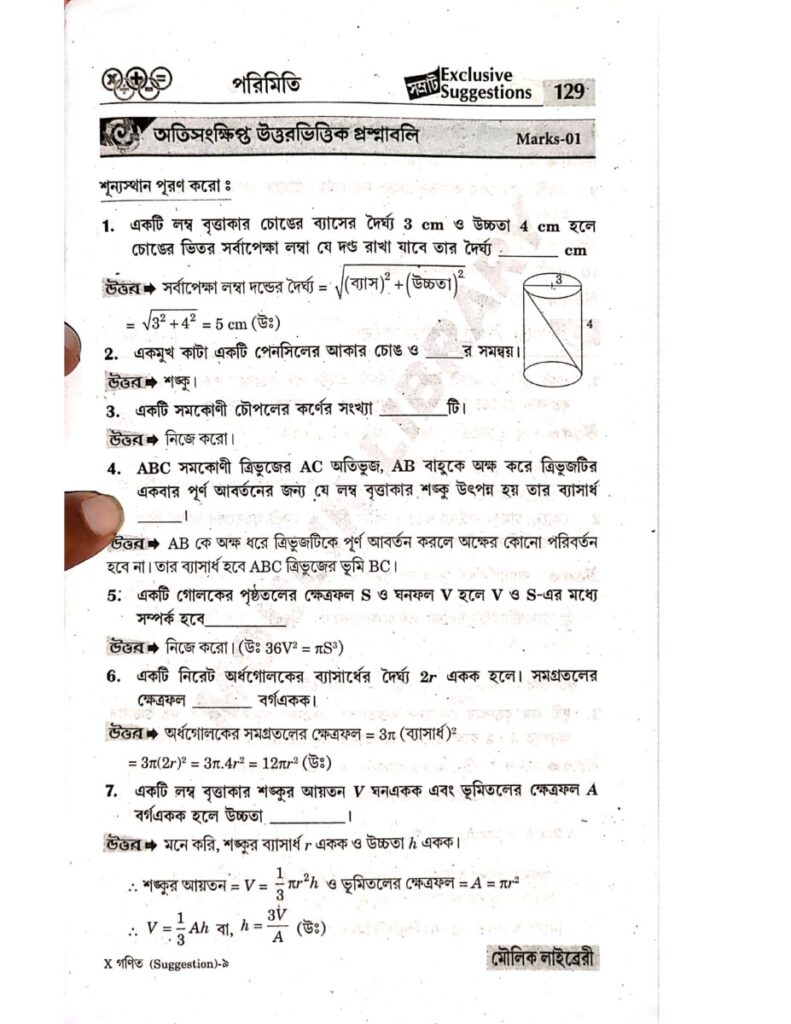 পরিমিতি
সম্রাট Exclusive Suggestions 129
অতিসংক্ষিপ্ত উত্তরভিত্তিক প্রশ্নাবলি Marks-01
শূন্যস্থান পূরণ করো :
1. একটি লম্ব বৃত্তাকার চোঙের ব্যাসের দৈর্ঘ্য 3 cm ও উচ্চতা 4 cm হলে
চোঙের ভিতর সর্বাপেক্ষা লম্বা যে দণ্ড রাখা যাবে তার দৈর্ঘ্য ________ cm
উত্তর ➡ সর্বাপেক্ষা লম্বা দন্ডের দৈর্ঘ্য = √((ব্যাস)² + (উচ্চতা)²)
= √(3² + 4²) = 5 cm (উঃ)
3
4
2. একমুখ কাটা একটি পেনসিলের আকার চোঙ ও _____র সমন্বয়।
উত্তর ➡ শঙ্কু।
3. একটি সমকোণী চৌপলের কর্ণের সংখ্যা ________টি।
উত্তর ➡ নিজে করো।
4. ABC সমকোণী ত্রিভুজের AC অতিভুজ, AB বাহুকে অক্ষ করে ত্রিভুজটির
একবার পূর্ণ আবর্তনের জন্য যে লম্ব বৃত্তাকার শঙ্কু উৎপন্ন হয় তার ব্যাসার্ধ
_____।
উত্তর ➡ AB কে অক্ষ ধরে ত্রিভুজটিকে পূর্ণ আবর্তন করলে অক্ষের কোনো পরিবর্তন
হবে না। তার ব্যাসার্ধ হবে ABC ত্রিভুজের ভূমি BC।
5. একটি গোলকের পৃষ্ঠতলের ক্ষেত্রফল S ও ঘনফল V হলে V ও S-এর মধ্যে
সম্পর্ক হবে_________
উত্তর ➡ নিজে করো। (উঃ 36V² = πS³)
6. একটি নিরেট অর্ধগোলকের ব্যাসার্ধের দৈর্ঘ্য 2r একক হলে। সমগ্রতলের
ক্ষেত্রফল ______ বর্গএকক।
উত্তর ➡ অর্ধগোলকের সমগ্রতলের ক্ষেত্রফল = 3π (ব্যাসার্ধ)²
= 3π(2r)² = 3π.4r² = 12πr² (উঃ)
7. একটি লম্ব বৃত্তাকার শঙ্কুর আয়তন V ঘনএকক এবং ভূমিতলের ক্ষেত্রফল A
বর্গএকক হলে উচ্চতা ________।
উত্তর ➡ মনে করি, শঙ্কুর ব্যাসার্ধ r একক ও উচ্চতা h একক।
∴ শঙ্কুর আয়তন = V = 1/3 πr²h ও ভূমিতলের ক্ষেত্রফল = A = πr²
∴ V = 1/3 Ah বা, h = 3V/A (উঃ)
X গণিত (Suggestion)-৯
মৌলিক লাইব্রেরী